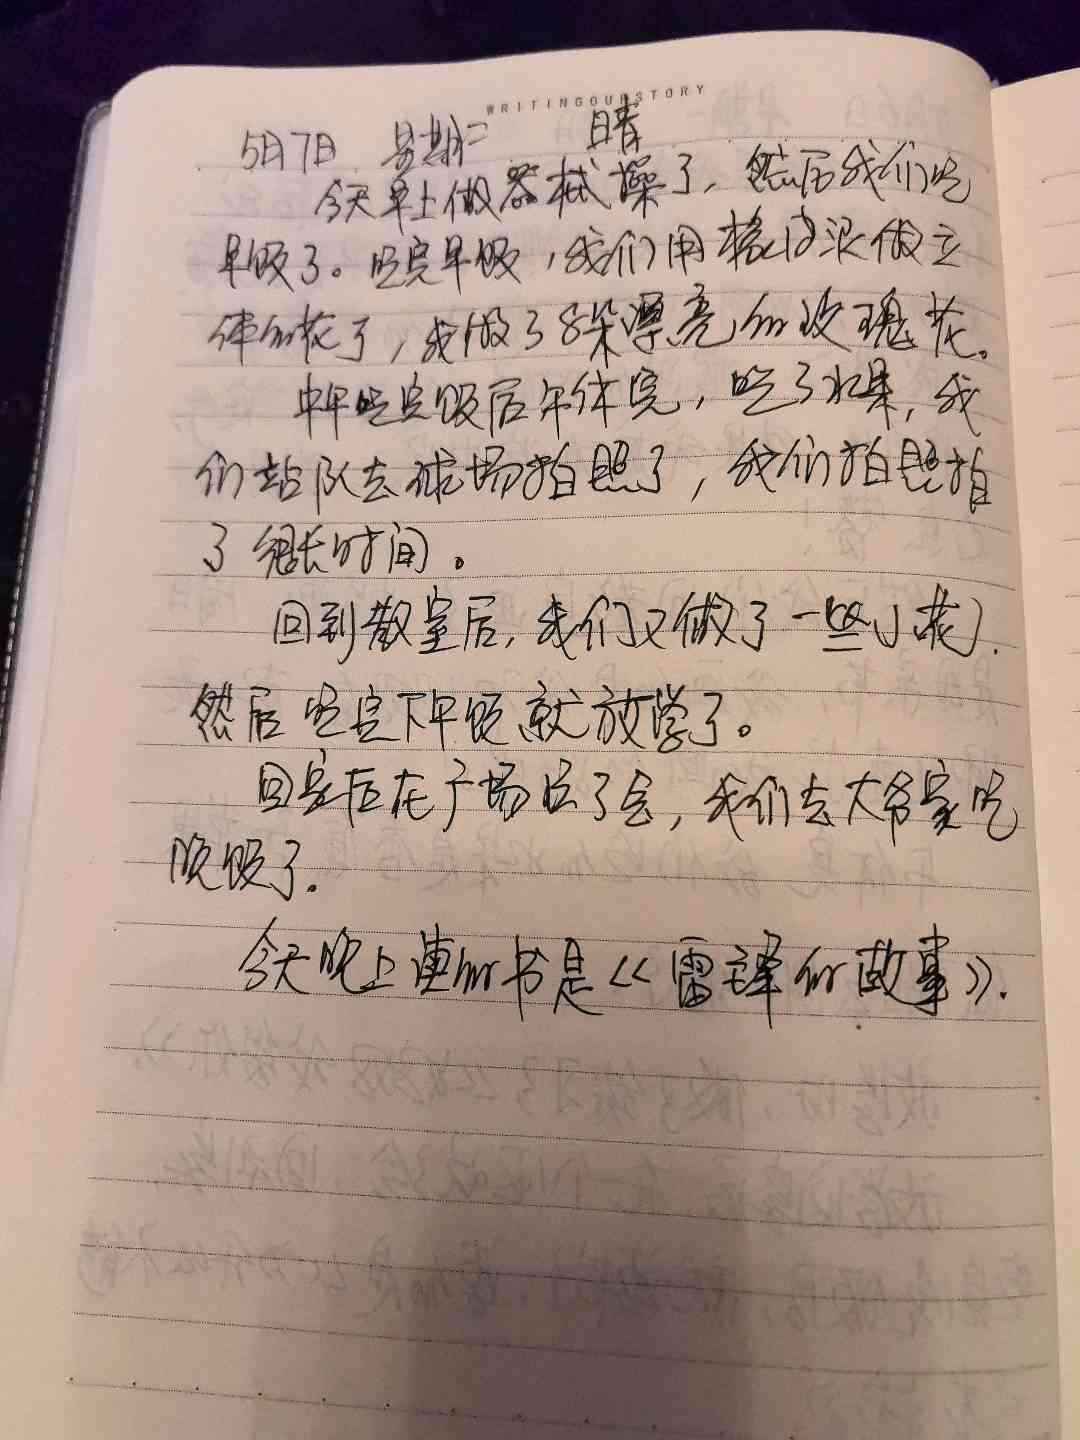 WRITINGOURSTORY
5月7日 星期二 晴
今天早上做器械操了，然后我们吃
早饭了。吃完早饭，我们用橡皮泥做立
体的花了，我做了8朵漂亮的玫瑰花。
中午吃完饭后午休完，吃了水果，我
们站队去球场拍照了，我们拍照拍
了很长时间。
回到教室后，我们又做了一些小花，
然后吃完下午饭就放学了。
回家后在广场玩了会，我们去大爷家吃
晚饭了。
今天晚上读的书是《雷锋的故事》.